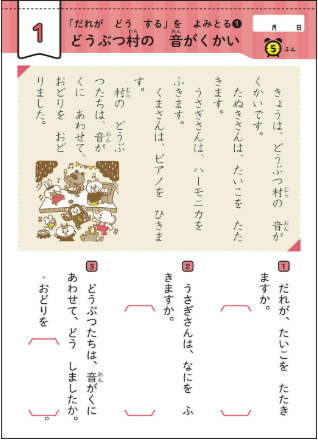 1
「だれが どう する」を よみとる❶
どうぶつ村の 音がくかい
むら
おん
月 日
5
ふん
きょうは、どうぶつ村の 音が
むら
おん
くかいです。
たぬきさんは、たいこを たた
きます。
うさぎさんは、ハーモニカを
ふきます。
くまさんは、ピアノを ひきま
す。
村の どうぶ
むら
つたちは、音が
おん
くに あわせて、
おどりを おど
りました。
1 だれが、たいこを たたき
ますか。
2 うさぎさんは、なにを ふ
きますか。
3 どうぶつたちは、音がくに
おん
あわせて、どう しましたか。
・おどりを
。